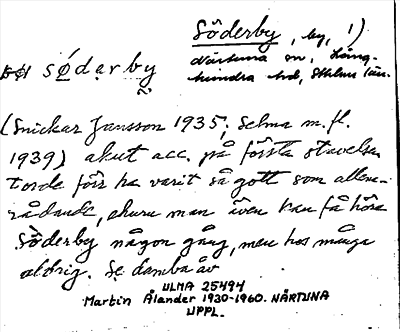 Söderby, by, 1)
Närtuna sn, Lång-
hundra hd, Sthlms län.
södərby
(Snickar Jansson 1935; Selma m. fl.
1939) akut acc. på första stavelsen
torde förr ha varit så gott som allena-
rådande, ehuru man även kan få höra
Söderby någon gång, men hos många
aldrig. Se Lambaåv
ULMA 25494
Martin Ålander 1930-1960. NÄRTUNA
UPPL.